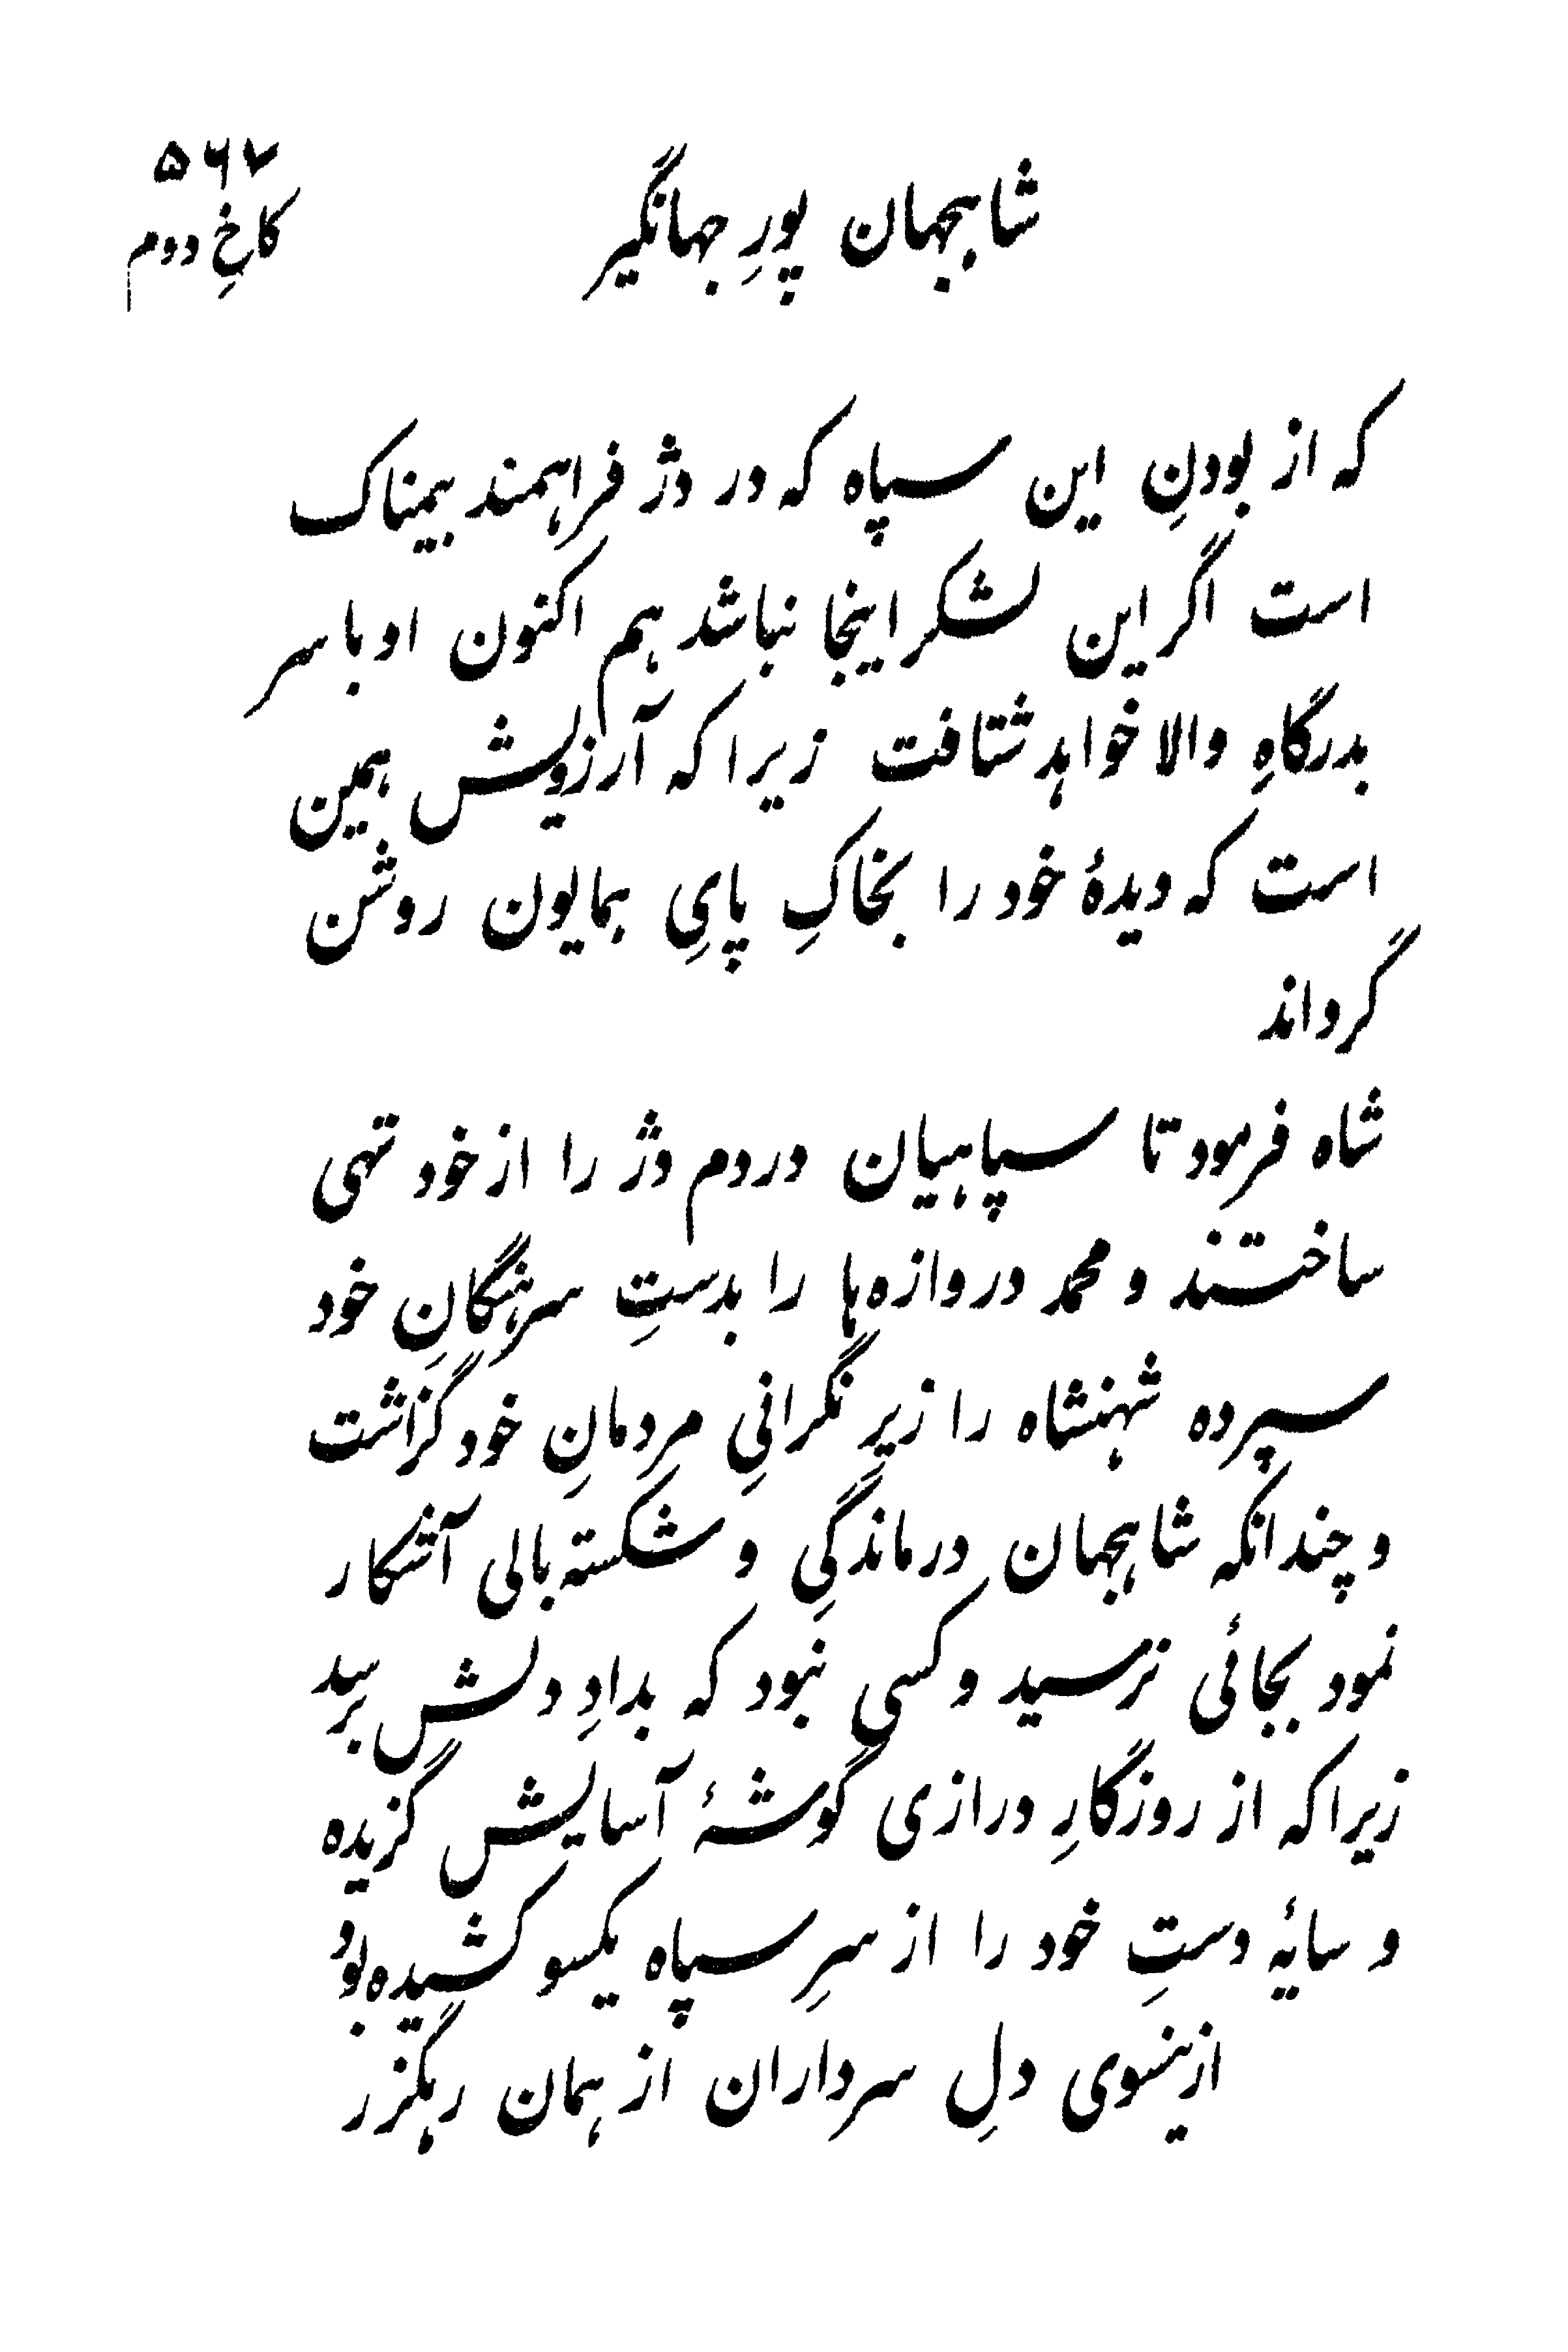 ۵۶۷
شاهجهان پورِ جهانگیر
کاخِ دوم
که از بودنِ این سپاه که در دژ فراهمند بیمناک
است اگر این لشکر اینجا نباشد هم اکنون او با سر
بدرگاهِ والا خواهد شتافت زیرا که آرزویش همین
است که دیدهٔ خود را بخاکِ پایِ همایون روشن
گرداند
شاه فرمود تا سپاهیان در دم دژ را از خود تهی
ساختند و محمد دروازه‌ها را بدستِ سرهنگانِ خود
سپرده شهنشاه را زیرِ نگرانیِ مردمانِ خود گزاشت
و چندانکه شاهجهان درماندگیِ و شکسته بالی آشکار
نمود بجائی نرسید و کسی نبود که بدادِ دلش برسد
زیرا که از روزگارِ درازی گوشهٔ آسایش گزیده
و سایهٔ دستِ خود را از سرِ سپاه یکسو کشیده بود
ازینسوی دلِ سرداران از همان رهگزر